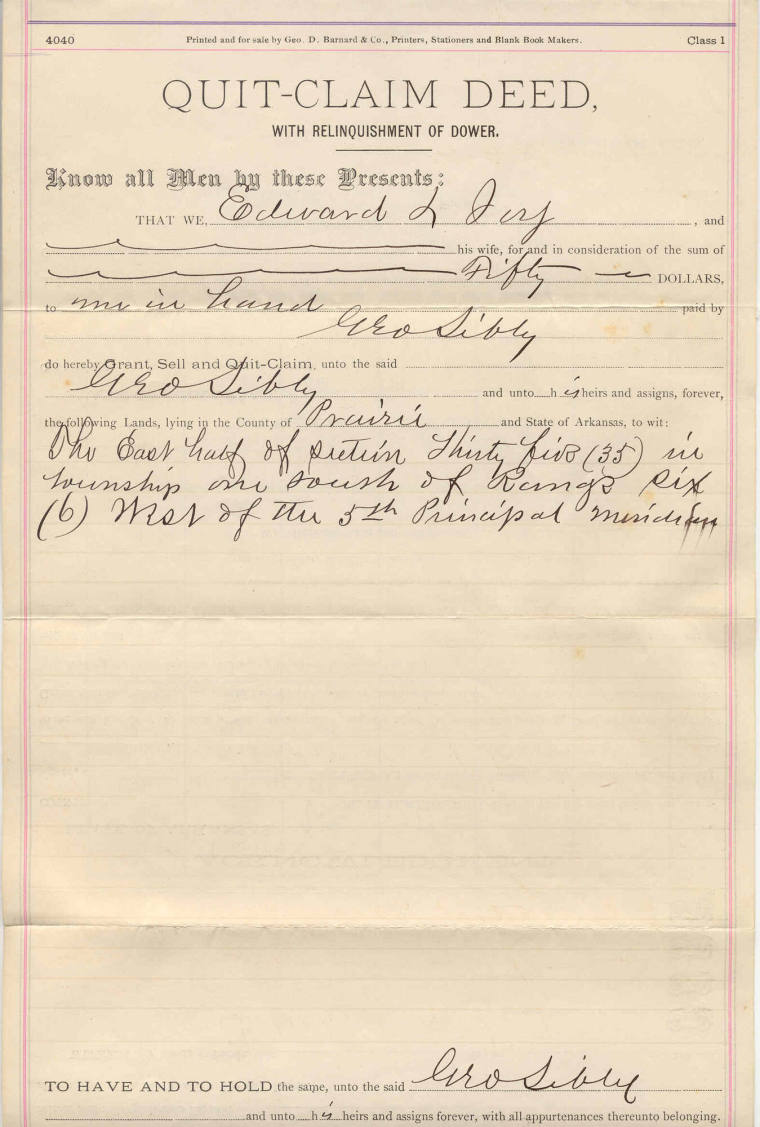 4040 Printed and for sale by Geo. D. Barnard & Co., Printers, Stationers and Blank Book Makers. Class 1
QUIT-CLAIM DEED,
WITH RELINQUISHMENT OF DOWER.
Know all Men by these Presents:
THAT WE, Edward L , and
his wife, for and in consideration of the sum of
Fifty DOLLARS,
to me in hand paid by
Geo Sibly
do hereby Grant, Sell and Quit-Claim, unto the said
Geo Sibly and unto h is heirs and assigns, forever,
the following Lands, lying in the County of Prairie and State of Arkansas, to wit:
The East half of section Thirty five (35) in
township one south of Range six
(6) West of the 5th Principal meridian
TO HAVE AND TO HOLD the same, unto the said Geo Sibly
and unto h is heirs and assigns forever, with all appurtenances thereunto belonging.